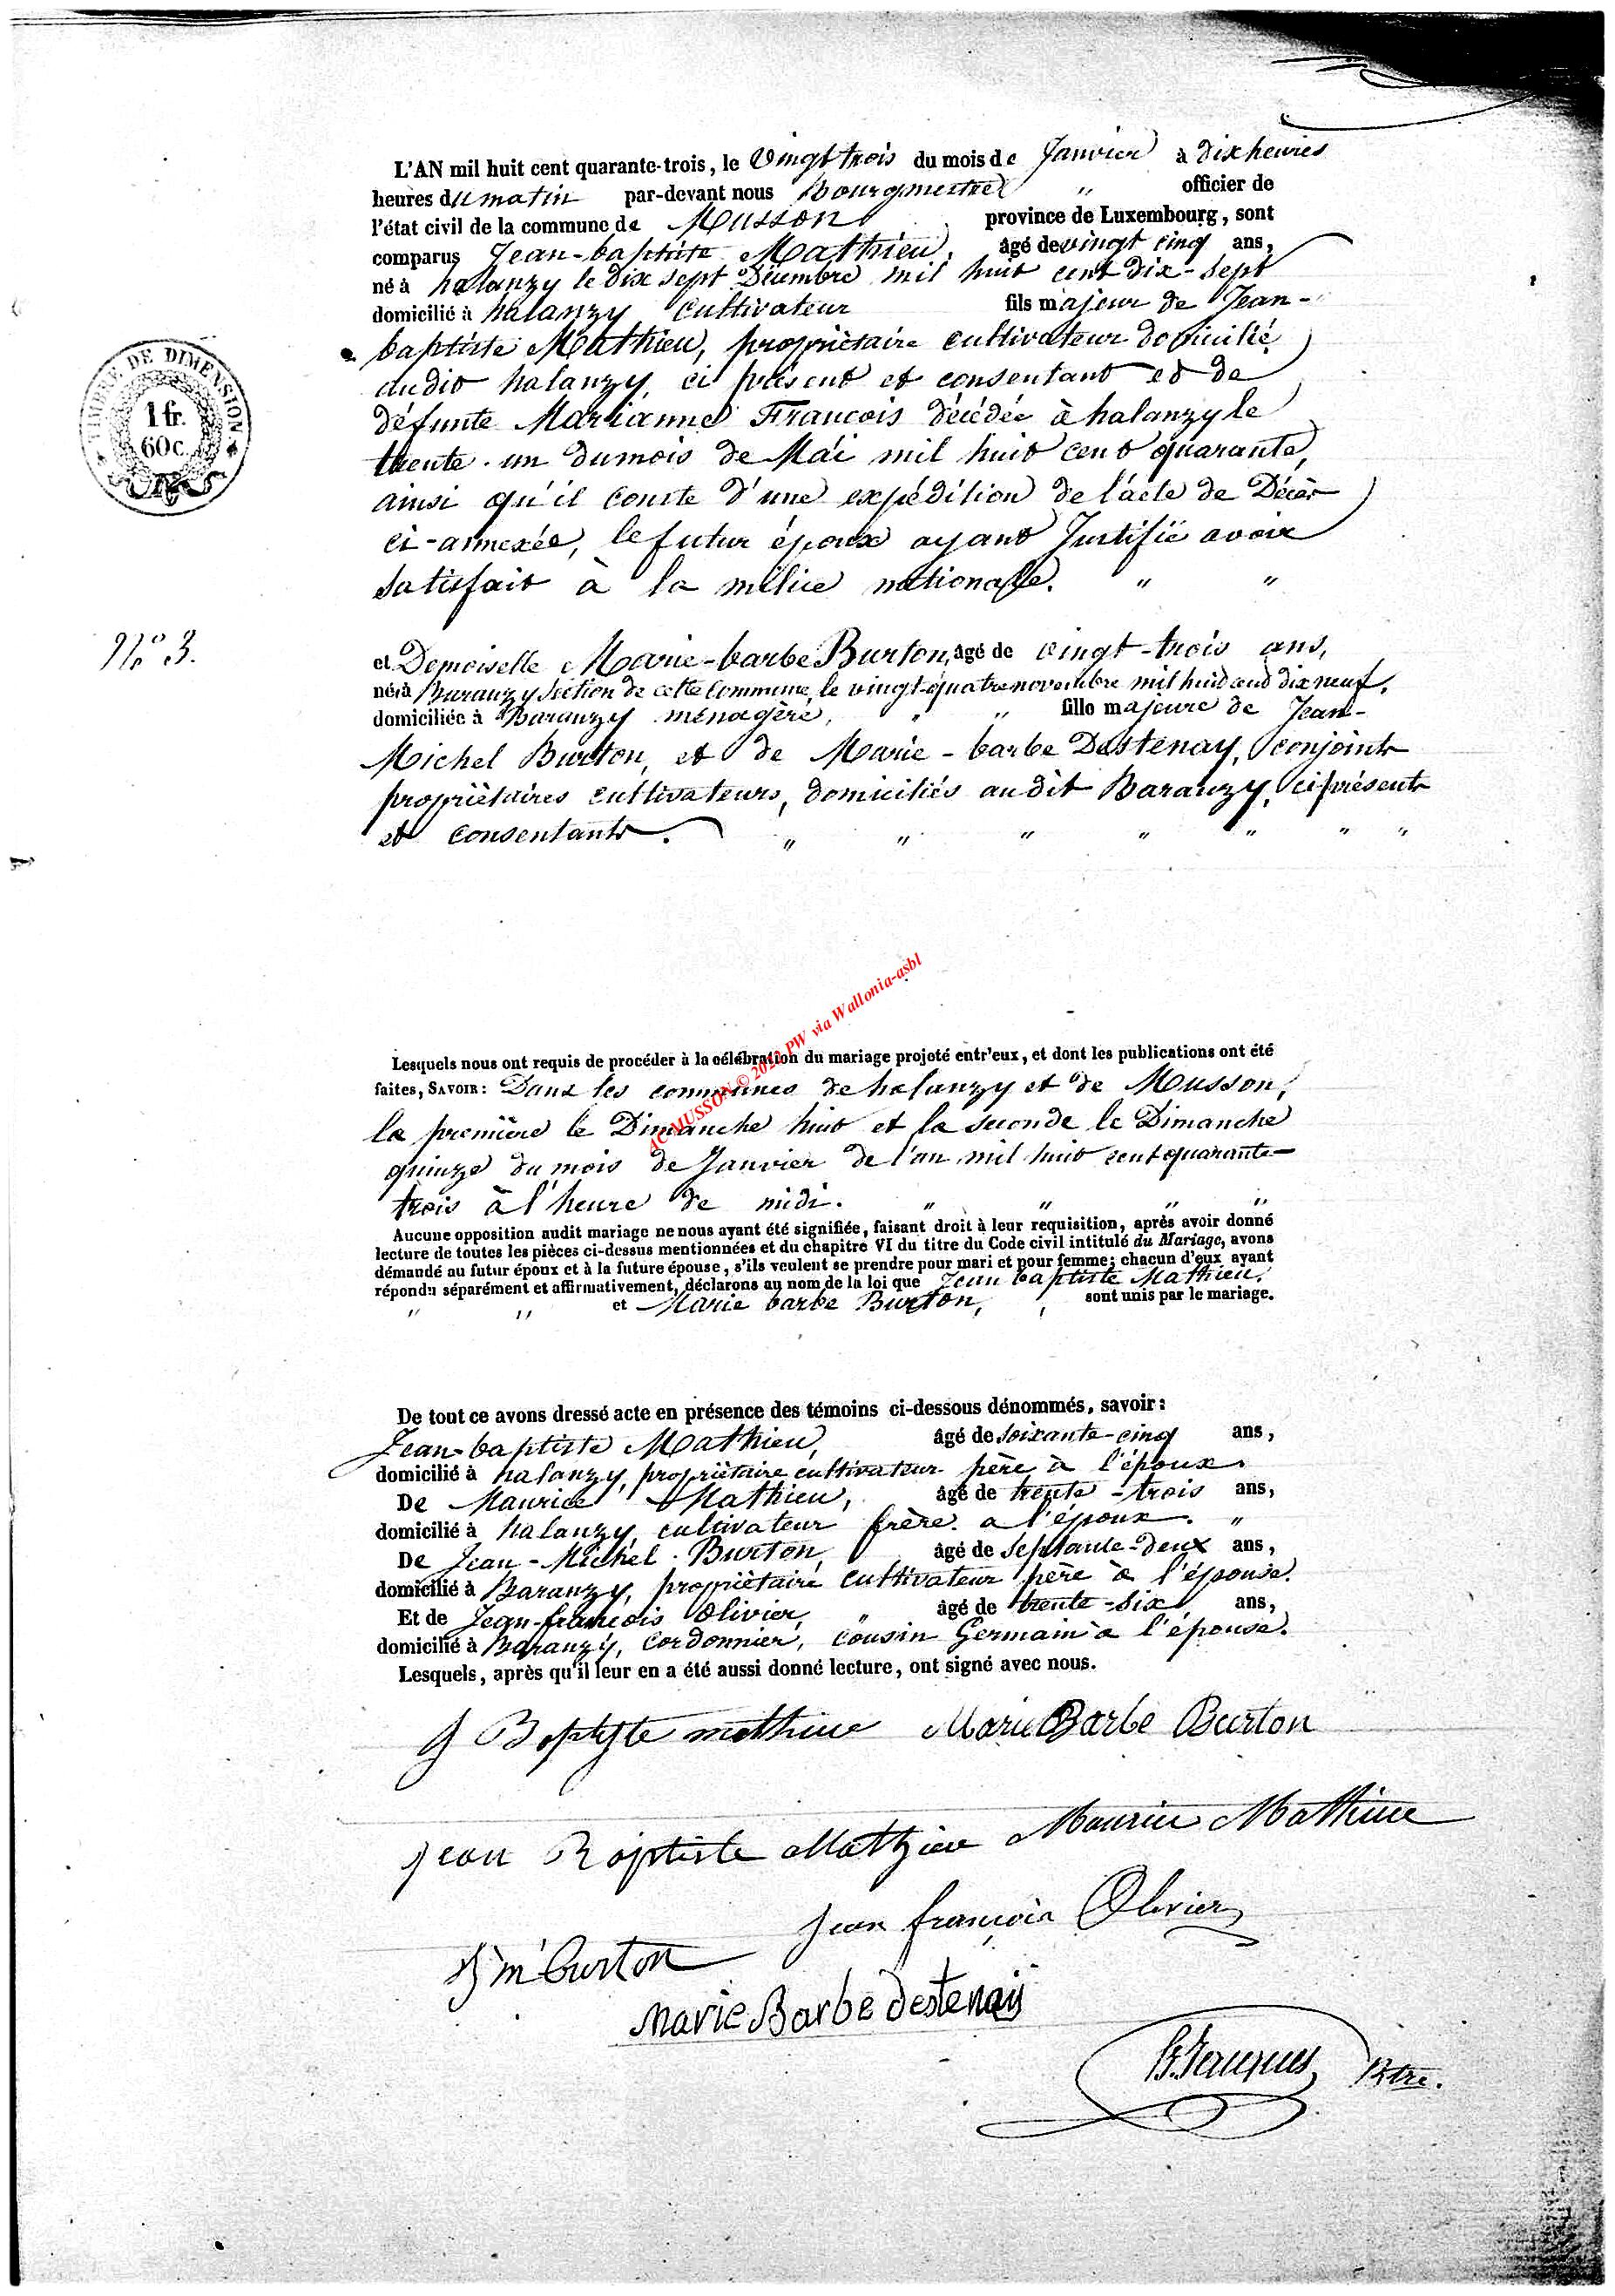 L'AN mil huit cent quarante-trois, le Vingt trois du mois de Janvier à dix heures
heures du matin par-devant nous Bourgmestre " officier de
l'état civil de la commune de Musson province de Luxembourg, sont
comparus Jean-baptiste Mathieu, âgé de vingt cinq ans,
né à halanzy le dix sept Décembre mil huit cent dix-sept
domicilié à halanzy cultivateur fils majeur de Jean-
baptiste Mathieu, propriètaire cultivateur domicilié
audit halanzy, ci présent et consentant et de
défunte Marianne Francois décédée à halanzy le
trente-un du mois de Mai mil huit cent quarante,
ainsi qu'il conste d'une expédition de l'acte de Décès
ci-annexée, le futur époux ayant Justifié avoir
satisfait à la milice nationale. " "
N° 3.
et Demoiselle Marie-barbe Burton, âgé de vingt-trois ans,
né à Baranzy section de cette commune, le vingt-quatre novembre mil huit cent dix neuf,
domiciliée à Baranzy ménagère, " " fille majeure de Jean-
Michel Burton, et de Marie-barbe Destenay, conjoints
propriètaires cultivateurs, domiciliés audit Baranzy, ci présents
et consentants. " " " " " " "
TIMBRE DE DIMENSION
1 fr.
60 c.
AC MUSSON © 2022 PW via Wallonia-asbl
Lesquels nous ont requis de procéder à la célébration du mariage projeté entr'eux, et dont les publications ont été
faites, SAVOIR: Dans les communes de halanzy et de Musson,
la première le Dimanche huit et la seconde le Dimanche
quinze du mois de Janvier de l'an mil huit cent quarante-
trois à l'heure de midi. " " " "
Aucune opposition audit mariage ne nous ayant été signifiée, faisant droit à leur requisition, après avoir donné
lecture de toutes les pièces ci-dessus mentionnées et du chapitre VI du titre du Code civil intitulé du Mariage, avons
démandé au futur époux et à la future épouse, s'ils veulent se prendre pour mari et pour femme; chacun d'eux ayant
répondu séparément et affirmativement, déclarons au nom de la loi que Jean baptiste Mathieu,
" " et Marie barbe Burton, sont unis par le mariage.
De tout ce avons dressé acte en présence des témoins ci-dessous dénommés, savoir:
Jean-baptiste Mathieu, âgé de soixante-cinq ans,
domicilié à halanzy, propriètaire cultivateur père à l'époux.
De Maurice Mathieu, âgé de trente-trois ans,
domicilié à halanzy, cultivateur frère a l'époux. "
De Jean-Michel Burton, âgé de Septante-deux ans,
domicilié à Baranzy, propriètaire cultivateur père à l'épouse.
Et de Jean-francois Olivier, " âgé de trente-six ans,
domicilié à Baranzy, cordonnier, cousin Germain à l'épouse.
Lesquels, après qu'il leur en a été aussi donné lecture, ont signé avec nous.
J Baptiste mathieu Marie Barbe Burton
Jean Baptiste Mathieu Maurice Mathieu
Jean françois Olivier
J m Burton
Marie Barbe destenaij
Jacques Btre.